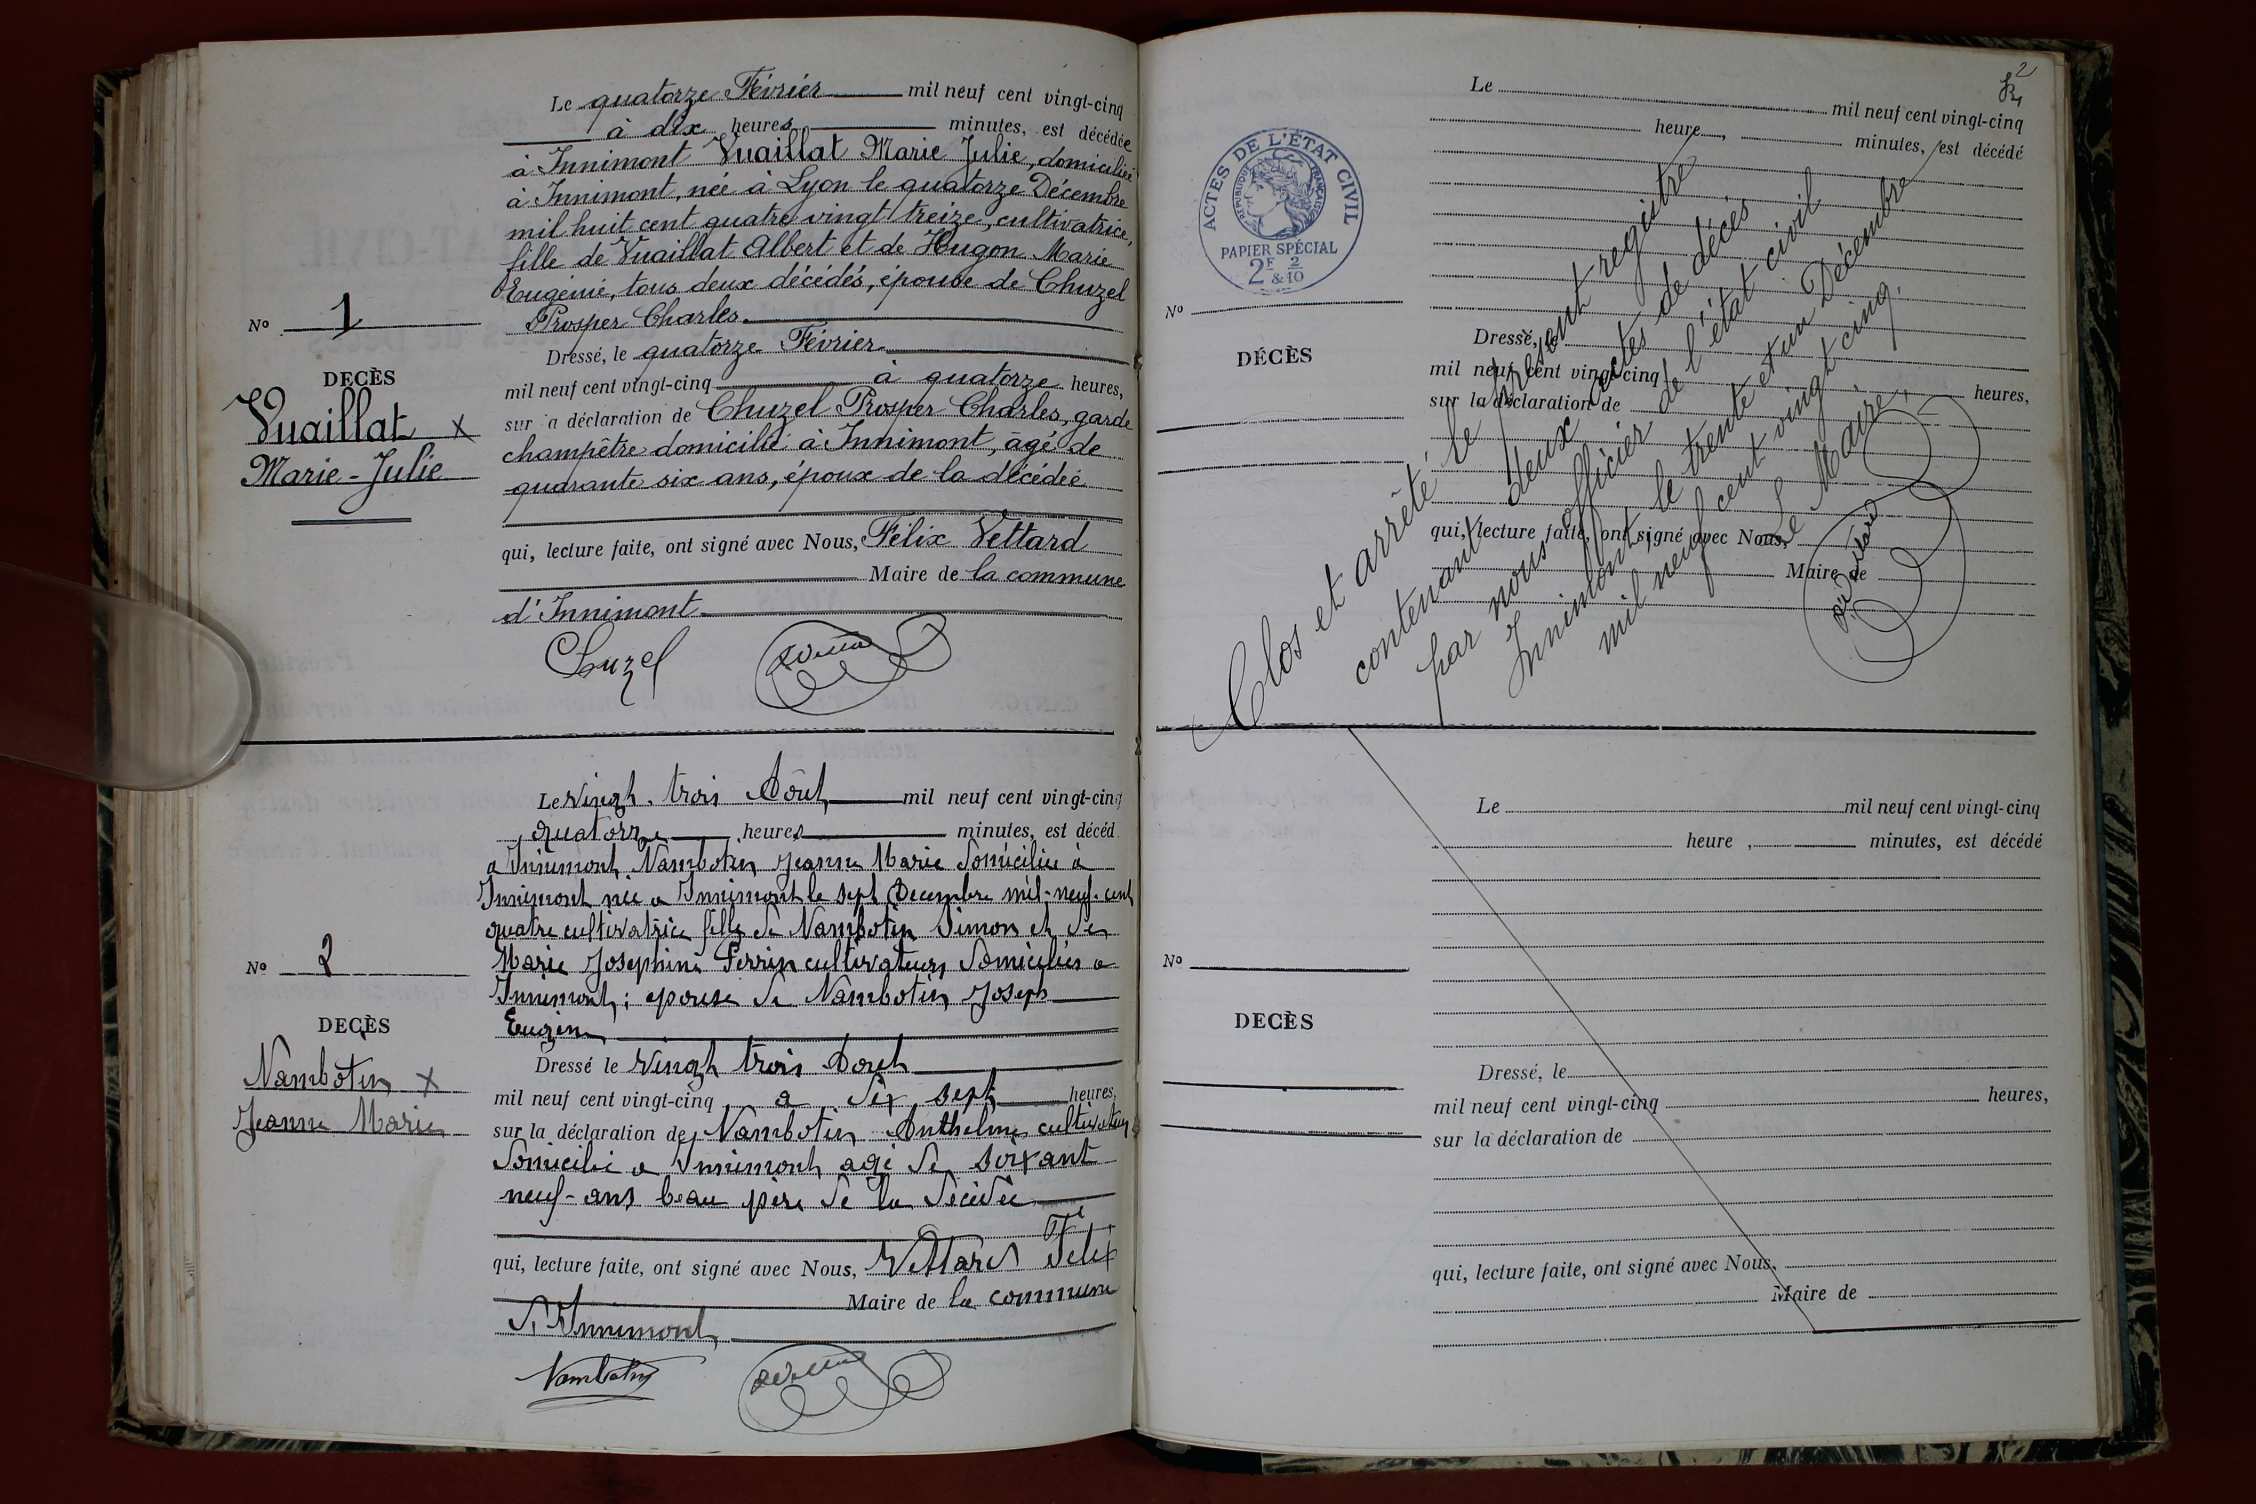 Le quatorze Février mil neuf cent vingt-cinq
à dix heures minutes, est décédée
à Innimont Vuaillat Marie Julie, domiciliée
à Innimont, née à Lyon le quatorze Décembre
mil huit cent quatre vingt treize, cultivatrice,
fille de Vuaillat Albert et de Hugon Marie
Eugenie, tous deux décédés, épouse de Chuzel
Prosper Charles.
Nº 1
DECÈS
Vuaillat x
Marie-Julie
Dressé, le quatorze Février
mil neuf cent vingt-cinq à quatorze heures,
sur a déclaration de Chuzel Prosper Charles, garde
champêtre domicilié à Innimont, âgé de
quarante six ans, époux de la décédée
qui, lecture faite, ont signé avec Nous, Félix Vettard
Maire de la commune
d'Innimont
Chuzel
Le vingt trois Août mil neuf cent vingt-cinq
quatorze heures minutes, est décéd
a Innimont Nambotin Jeanne Marie domiciliée à
Innimont née a Innimont le sept Decembre mil-neuf-cent
quatre cultivatrice fille de Nambotin Simon et de
Marie Josephine Perrin cultivateurs domiciliés a
Innimont; epouse de Nambotin Joseph
Eugène
Nº 2
DECÈS
Nambotin x
Jeanne Marie
Dressé le vingt trois Aout
mil neuf cent vingt-cinq a dix sept heures,
sur la déclaration de Nambotin Anthelme cultivateur
domicilié a Innimont agé de soixant
neuf-ans beau père de la décédée
qui, lecture faite, ont signé avec Nous, Vettard Félix
Maire de la commune
d'Innimont
Nambotin
2
ACTES DE L'ÉTAT CIVIL
RÉPUBLIQUE FRANÇAISE
PAPIER SPÉCIAL
2F & 2/10
Le mil neuf cent vingt-cinq
heure , minutes, est décédé
Nº
DÉCÈS
Dressé, le
mil neuf cent vingt-cinq heures,
sur la déclaration de
qui, lecture faite, ont signé avec Nous,
Maire de
Clos et arrêté le présent registre
contenant deux actes de décès
par nous officier de l'état civil
Innimont, le trente et un Décembre
mil neuf cent vingt cinq.
Le Maire,
Le mil neuf cent vingt-cinq
heure , minutes, est décédé
Nº
DECÈS
Dressé, le
mil neuf cent vingt-cinq heures,
sur la déclaration de
qui, lecture faite, ont signé avec Nous,
Maire de